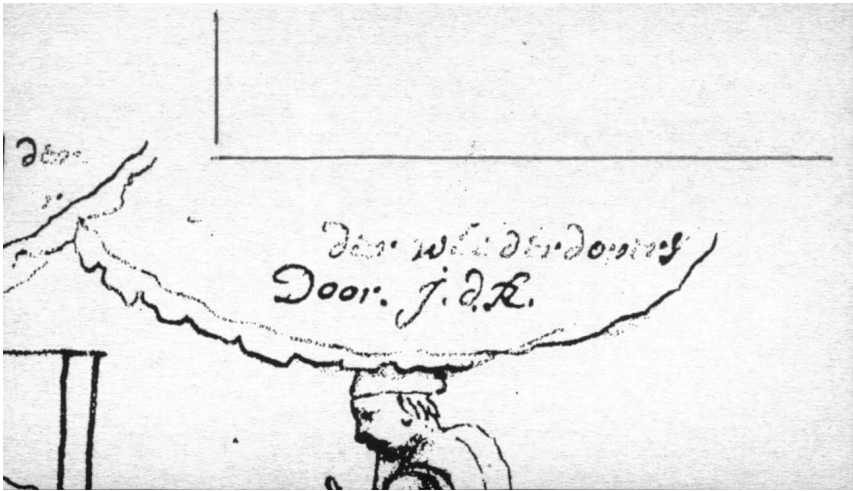 der
der wederdopers
Door. J. d. R.